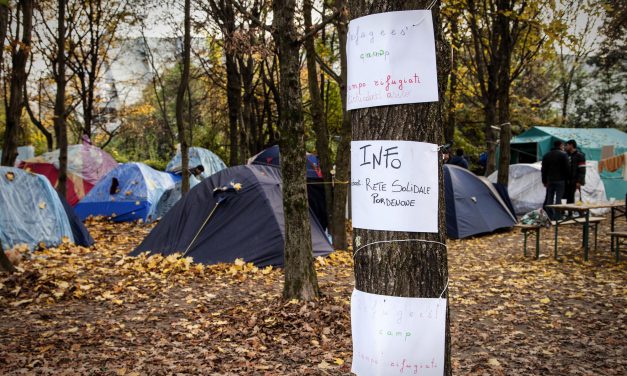 refugees'
camp
campo rifugiati
INFO
RETE SOLIDALE
PORDENONE
refugees'
camp
campo rifugiati